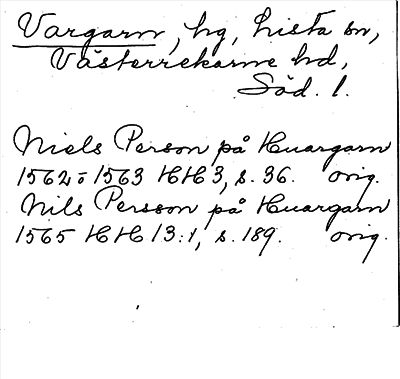 Vargarn, hg, Lista sn,
Västerrekarne hd,
Söd. l.
Niels Person på Huargarn
1562 o 1563 HH 3, s. 36. orig.
Nils Persson på Huargarn
1565 HH 13:1, s. 189. orig.